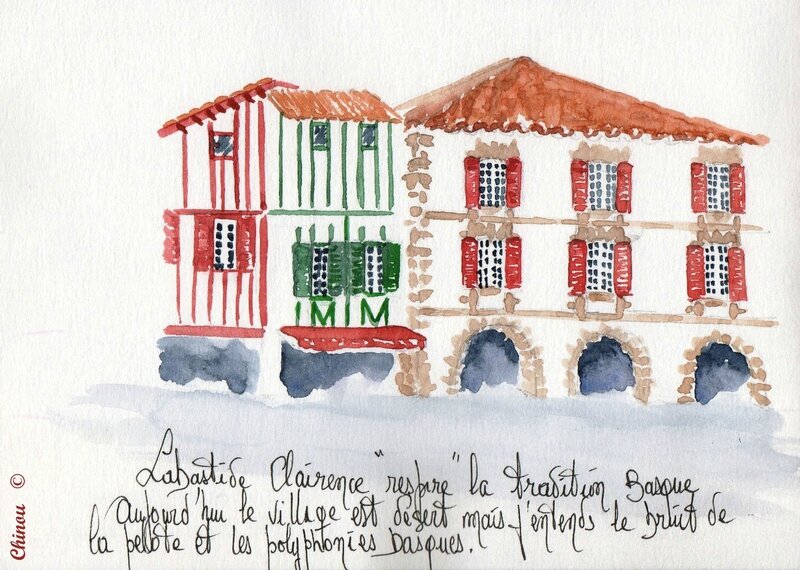 Labastide Clairence "respire" la tradition Basque
Aujourd'hui le village est désert mais j'entends le bruit de
la pelote et les polyphonies basques.
Chinou ©